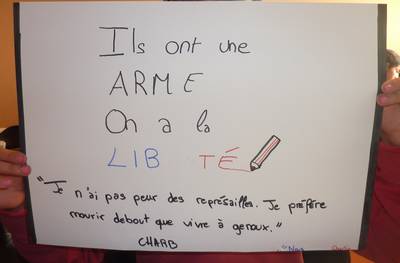 Ils ont une
ARME
On a la
LIB TÉ
"Je n'ai pas peur des représailles. Je préfère
mourir debout que vivre à genoux."
CHARB